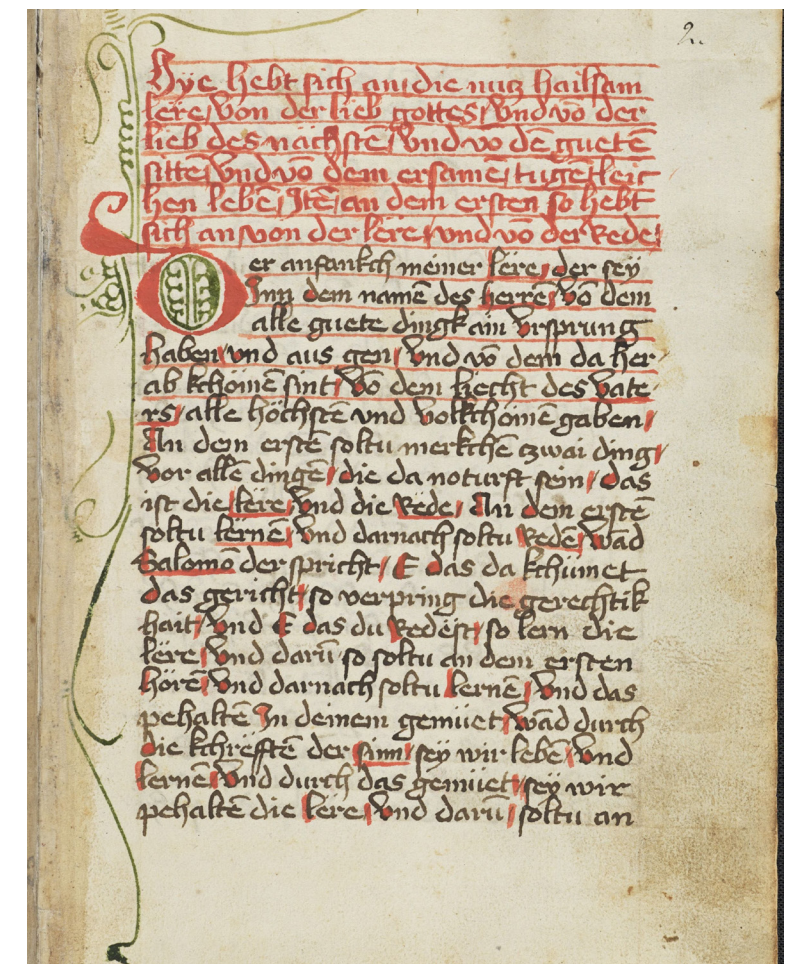 2.
Hye hebt sich an die nucz hailsam
lere, von der lieb gottes, vnd vō der
lieb des nächstē, vnd vō dē guetē
sittē, vnd vō dem ersamē, tugētleic
hen lebē, Itē, an dem ersten so hebt
sich an, von der lere, vnd vō der Rede,
Der anfankch meiner lere, der sey
Inn dem namē des herrē, vō dem
alle guete dingk ain vrsprung
haben, vnd aus gen, vnd vō dem da her
ab kchömē sint, vō dem liecht des vate
rs, alle höchstē vnd volkchömē gaben,
An dem erstē soltu merkchē czwai ding,
vor allē dingē, die da noturft sein, das
ist die lere, vnd die Rede, An dem erstē
soltu lernē, vnd darnach soltu Redē, wād
Salomō der spricht, E das da kchūmet
das gericht, so verpring die gerechtik
hait, vnd E das du Redest, so lern die
lere, vnd darū so soltu an dem ersten
hörē, vnd darnach soltu lernē, vnd das
pehaltē In deinem gemüet, wād durch
die kchrefftē der sinn, sey wir lebē, vnd
lernē, vnd durch das gemüet, sey wir
pehaltē die lere, vnd darū, soltu an